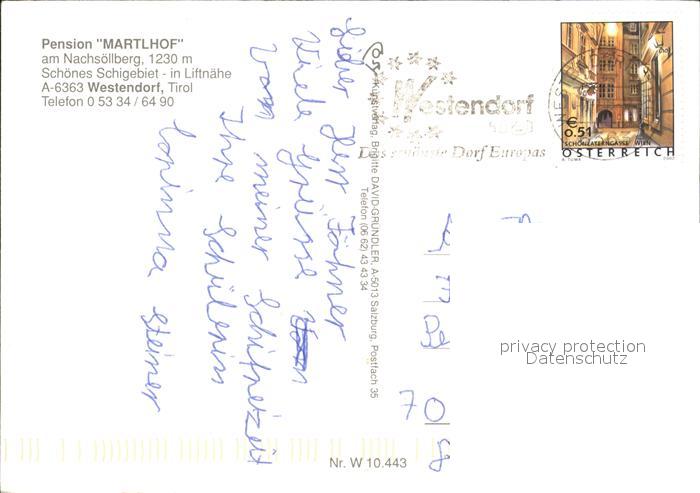 Pension "MARTLHOF"
am Nachsöllberg, 1230 m
Schönes Schigebiet - in Liftnähe
A-6363 Westendorf, Tirol
Telefon 0 53 34 / 64 90
Lieber Herr Föhner
Viele Grüsse
Vom meiner Schifreizeit
Ihre Schülerin
Corinna Steiner
Kunstverlag, Brigitte DAVID-GRÜNDLER, A-5013 Salzburg, Postfach 35
Telefon (06 62) 43 43 34
Westendorf
Das schönste Dorf Europas
€
0,51
SCHÖNLATERNGASSE WIEN
ÖSTERREICH
A. TUMA 2002
70
privacy protection
Datenschutz
Nr. W 10.443